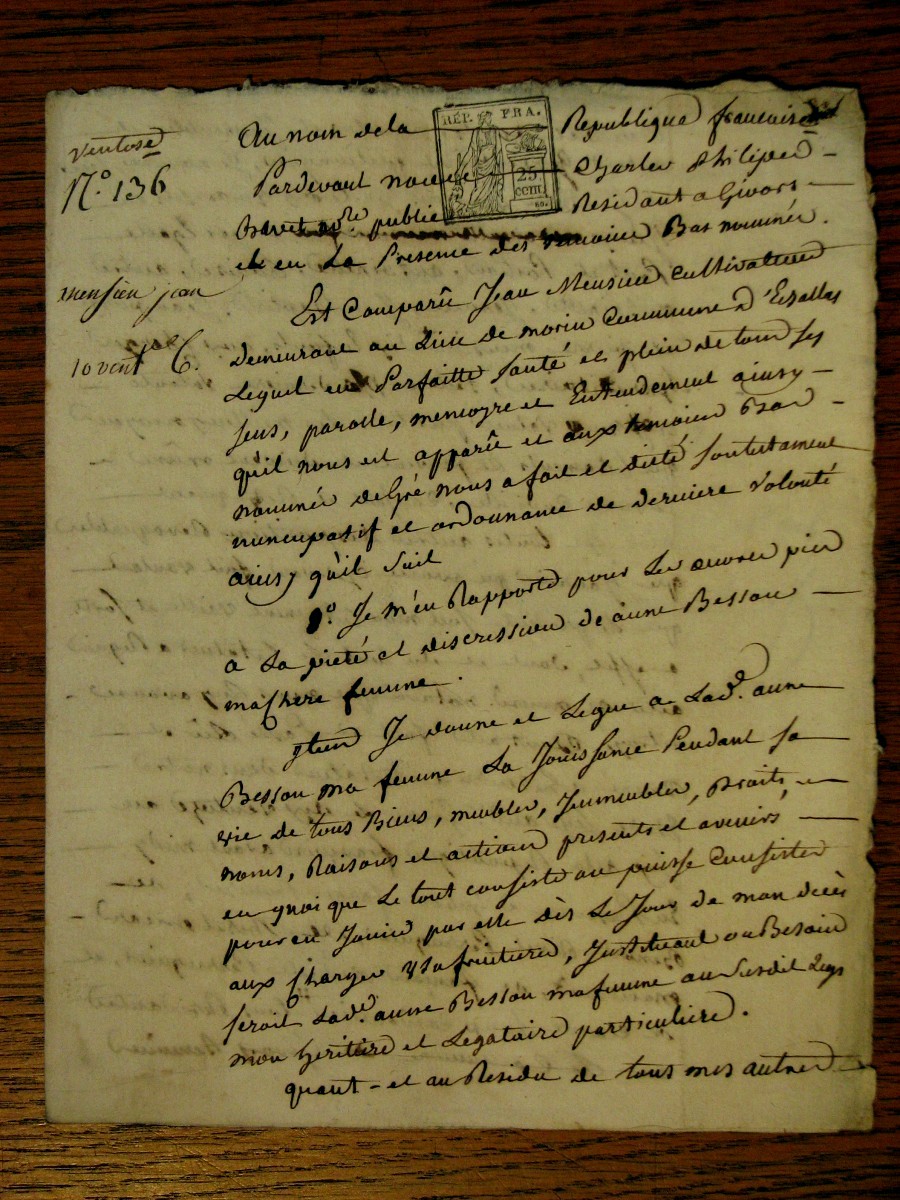 ventose
N.° 136
mensieu jean
10 vent.se 6.
RÉP. FRA.
25
cent.
Au nom de la République francaise
Pardevant nous Charles Philipes
Brevet no.re public Residant a Givors
et en La Presence des temoins Bas nommés.
Est Comparû Jean Mensieu cultivateur
demeurant au Lieu de morin Commune d'Echallas
Lequel en Parfaitte santé et plein de tous ses
sens, parolle, memoyre et Entendement ainsy
qu'il nous est apparû et aux temoins Bas
nommés de Gré nous a fait et dicté son testament
nuncupatif et ordonnance de derniere volonté
ainsy qu'il suit
1.° Je m'en Rapporte pour Les œuvres pies
a La pieté et discression de anne Besson
ma Chere femme.
ytem Je donne et Legue a Lad.e anne
Besson ma femme La Jouissance Pendant sa
vie de tous Biens, meubles, Immeubles, Droits,
noms, Raisons et actions presents et avenirs
en quoi que Le tout consiste ou puisse Consister
pour en Jouir par elle dès Le Jour de mon decès
aux Charges Usufruitieres, Instituant ou Besoin
seroit Lad.e anne Besson ma femme au susdit Legs
mon heritiere et Legataire particuliere.
quant-et au Residu de tous mes autres